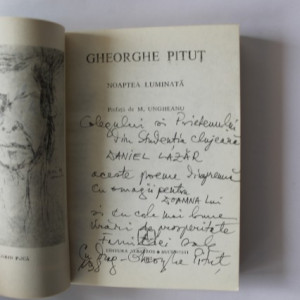 GHEORGHE PITUȚ
NOAPTEA LUMINATĂ
Prefață de M. UNGHEANU
Colegului și Prietenului
din studenția clujeană
DANIEL LAZĂR
aceste poeme împreună
cu omagii pentru
DOAMNA lui
și cu cele mai bune
urări de prosperitate
Familiei
Gheorghe Pituț
EDITURA